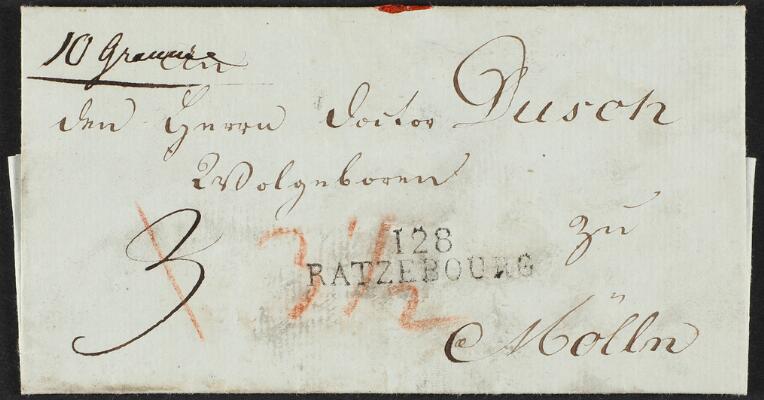 10 Gramme
An
den Herrn Doctor Dusch
Wolgeboren
zu
3 3 1/2
128
RATZEBOURG
Mölln